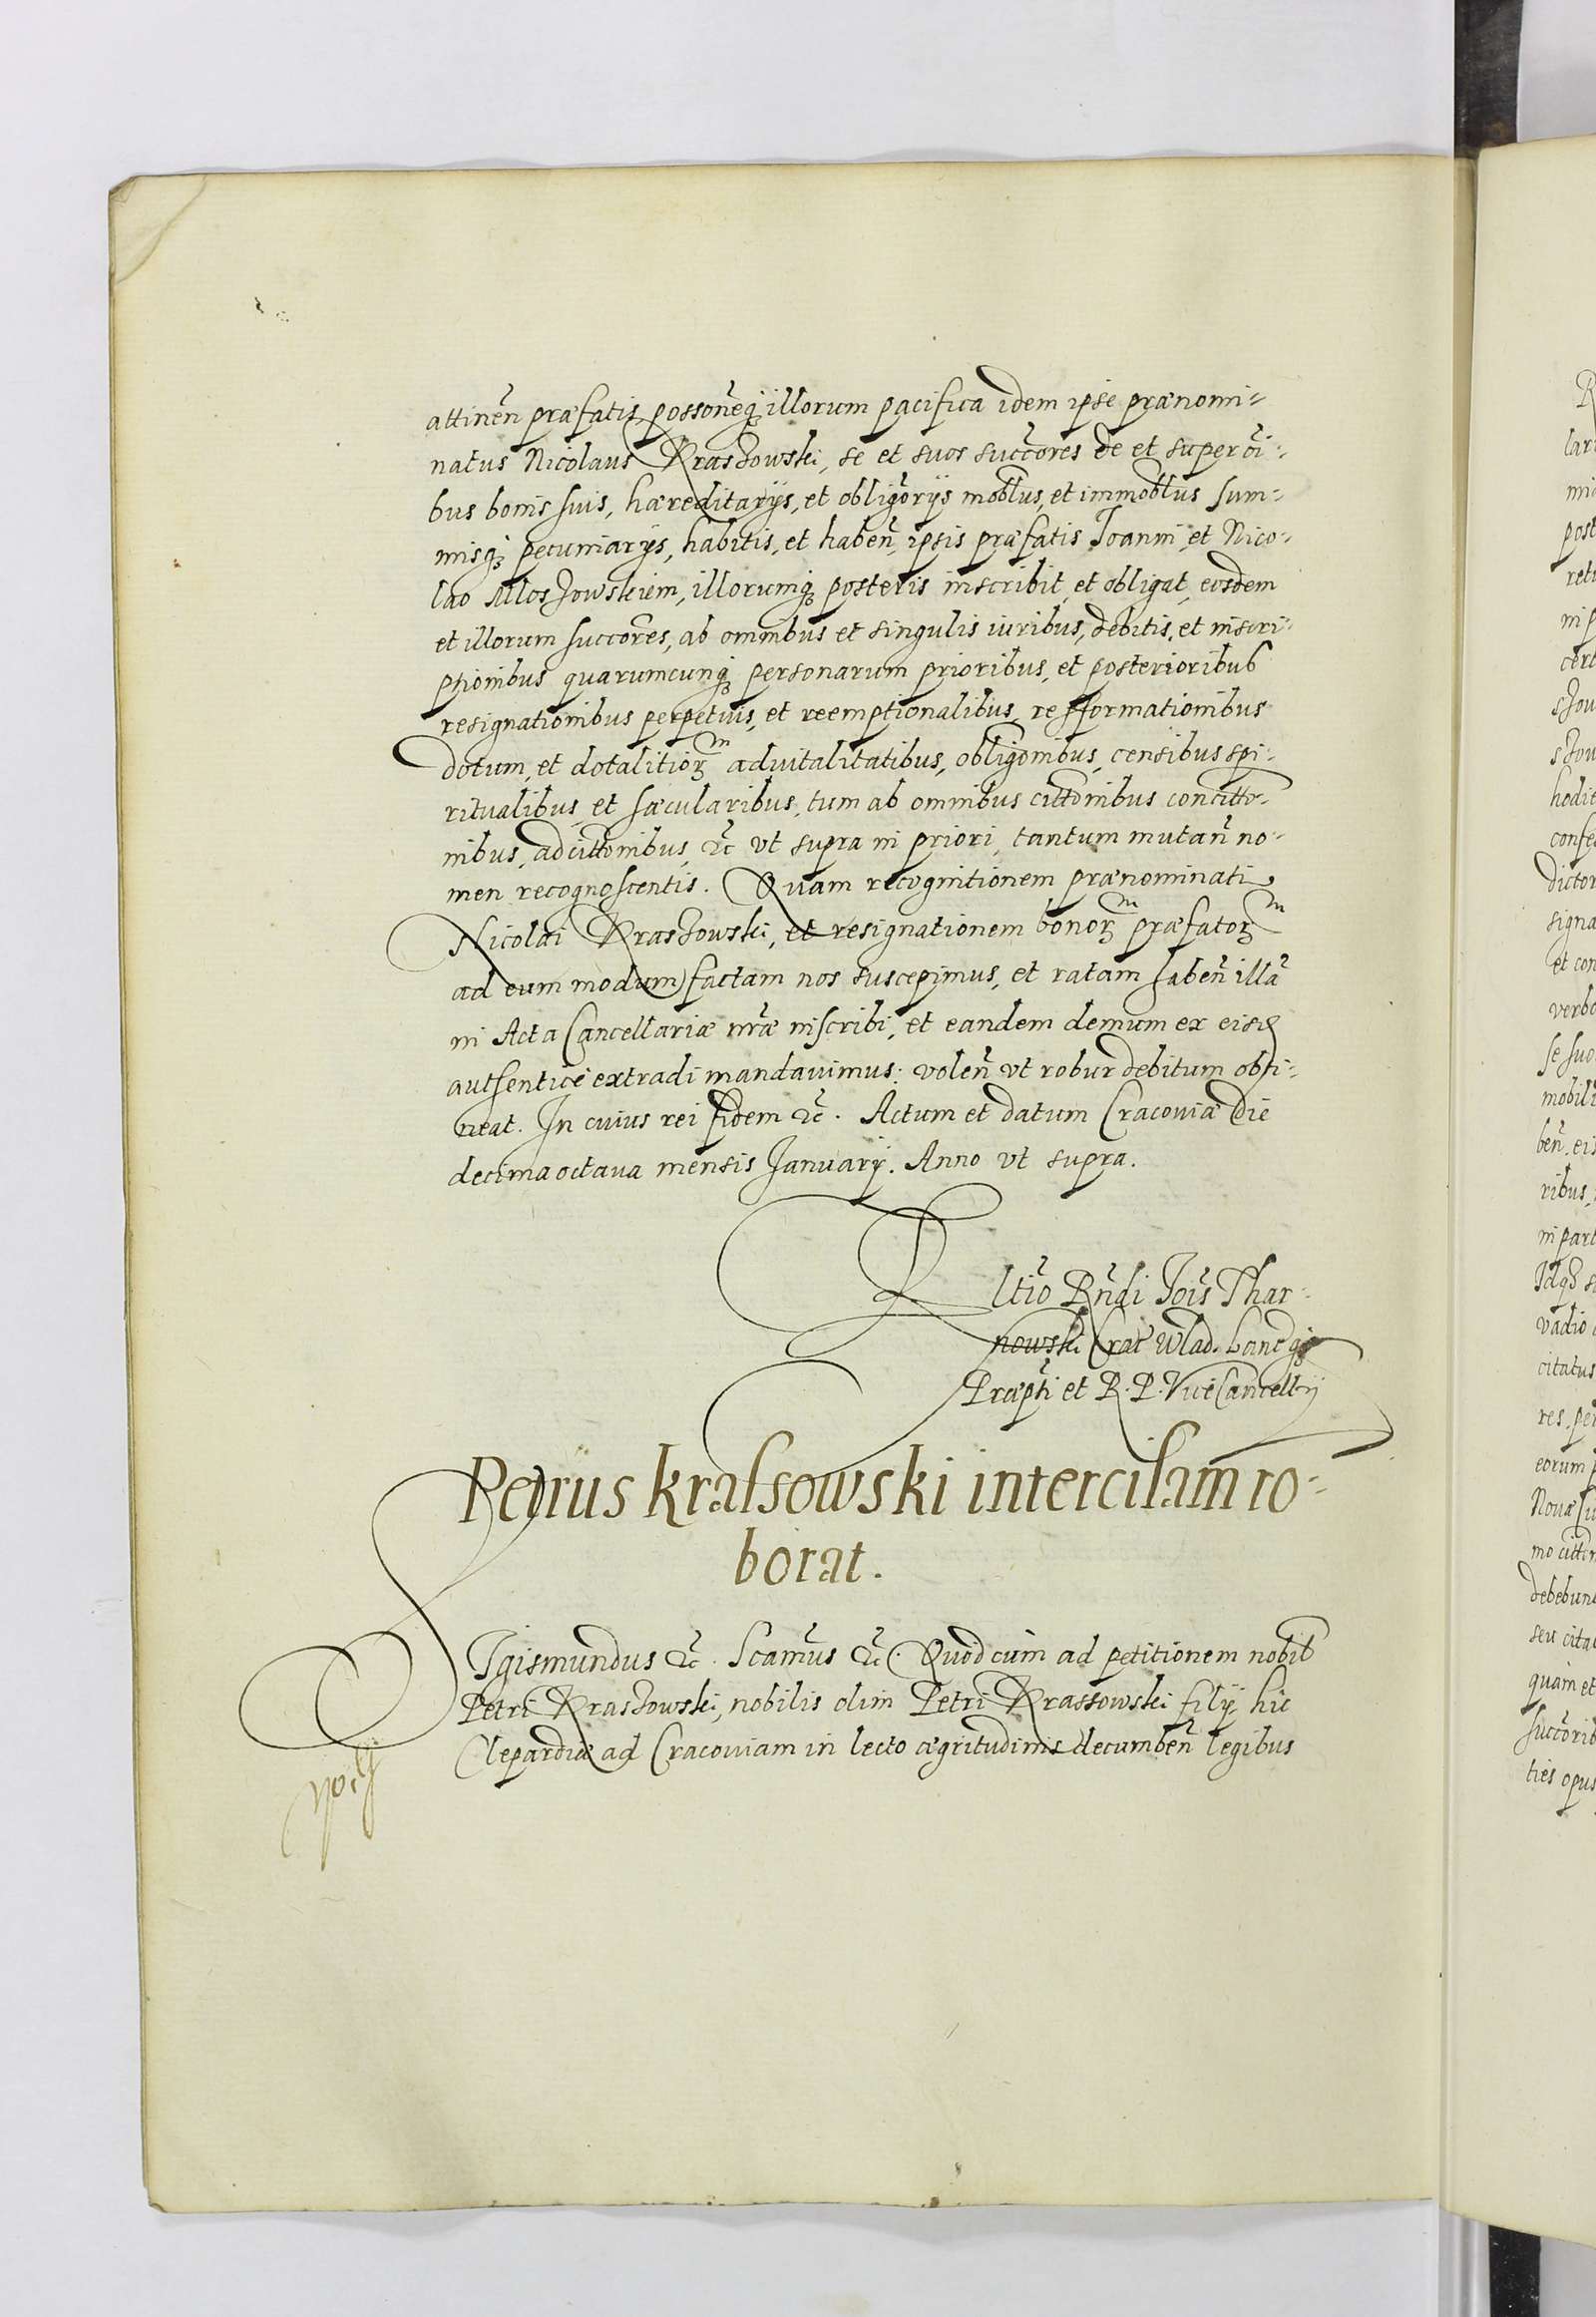 attineñ præfatis, possoneq̃ illorum pacifica idem ipse prænomi-
natus Nicolaus Kraszowski, se et suos succõres de et super oĩ-
bus bonis suis, hæreditarijs, et obligõrijs mobłus, et immobłus sum-
misq̃ pecuniarijs, habitis, et habeñ, ipsis præfatis Joanni et Nico-
lao illorumq̃ posteris inscribit, et obligat, eosdem
et illorum succores, ab omnibus et singulis iuribus, debitis, et inscri-
ptionibus quarumcunq̃ personarum prioribus, et posterioribus
resignationibus perpetuis, et reemptionalibus, refformationibus
dotum, et dotalitiorm advitalitatibus, obligõnibus, censibus spi-
ritualibus, et sæcularibus, tum ab omnibus citõnibus concitõ-
nibus, adcitõnibus, &c̃ vt supra in priori, tantum mutañ no-
men recognoscentis. Quam recognitionem prænominati
Nicolai Kraszowski, et resignationem bonorm præfatorm
ad eum modum factam nos suscepimus, et ratam habeñ illã
in Acta Cancellariæ nr̃æ inscribi, et eandem demum ex eisd
authentice extradi mandauimus: voleñ vt robur debitum obti-
neat. In cuius rei fidem &c̃. Actum et datum Cracouiæ die
decima octaua mensis Januarij. Anno vt supra.
Rltĩo Rñdi Joĩs Thar-
nowski Crac̃ Wlad. Lancq̃
Præpti et R. P. ViceCancellrij
Petrus Krassowski intercisam ro-
borat.
SIgismundus &c̃. Scamũs &c̃. Quod cum ad petitionem nobil
Petri Kraszowski, nobilis olim Petri Krassowski filij, hic
Clepardiæ ad Cracouiam in lecto ægritudinis decumbeñ legibus